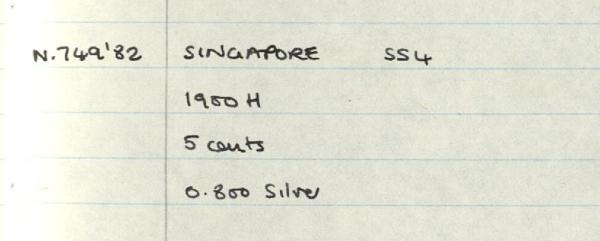 N.749'82 SINGAPORE SS4
1900 H
5 cents
0.800 Silver